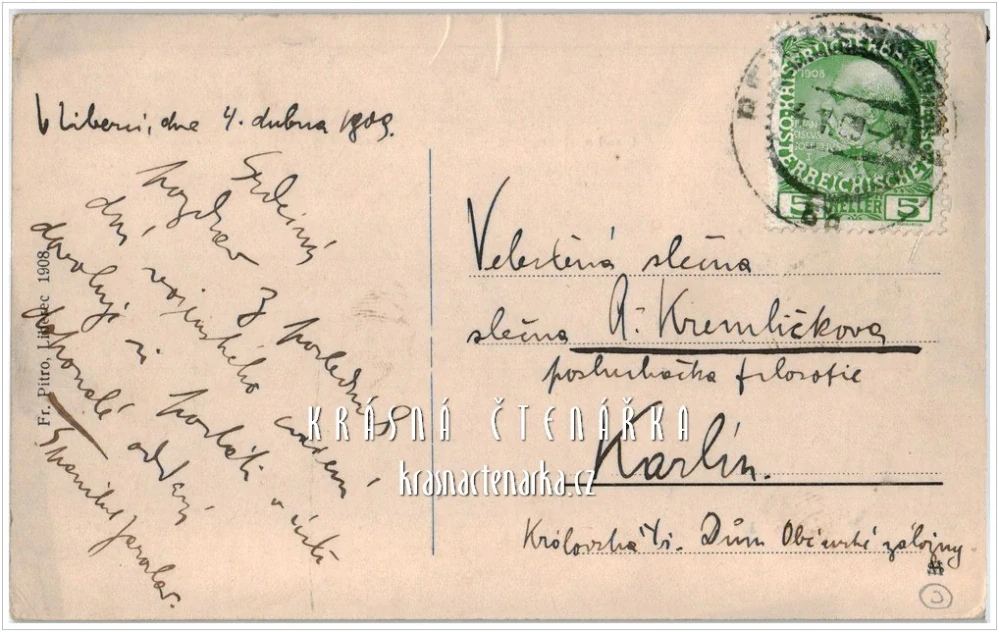 V Liberci, dne 4. dubna 1909.
Srdečný
pozdrav z posledních
dnů vojenského cvičení
dovoluji si poslati v úctě
dokonalé oddaný
Jaroslav.
Fr. Pitro, Liberec 1908
KAISERLICHE KÖNIGLICHE ÖSTERREICHISCHE
1908
5 HELLER 5
Velectěná slečna
slečna A. Kremličkova
posluchačka filosofie
Karlín.
Královská Dům Občanské záložny
KRÁSNÁ ČTENÁŘKA
krasnactenarka.cz